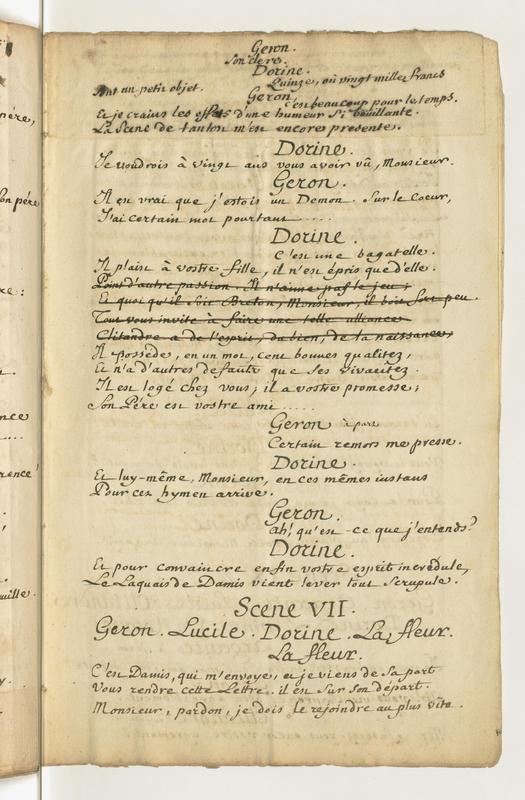 père,
on père
Geron.
Son dere.
Dorine.
Quinze, où vingt mille francs
Ant un petit objet.
Geron
c'est beaucoup pour le temps.
Et je crains les effets d'une humeur Si bouillante.
La Scene de tantost m'est encores presente.
Dorine.
Je voudrois à vingt ans vous avoir vû, Monsieur.
Geron.
Il est vrai que j'estois un Demon. Sur le Coeur,
J'ai certain mot pourtant .....
Dorine.
C'est une bagatelle.
Il plaist à vostre fille, il n'est épris que d'elle.
Point d'autre passion. Il n'aime pas le jeu;
Et quoi qu'il Soit Breton, Monsieur, il boit fort peu.
Tout vous invite à faire une telle alliance.
Clitandre a de l'esprit, du bien, de la naissance,
Il possède, en un mot, cent bonnes qualitez,
Et n'a d'autres defauts que Ses vivacitez.
Il est logé chez vous; il a vostre promesse;
Son Pére est vostre ami .....
Geron à part
Certain remors me presse.
Dorine.
Et luy-même, Monsieur, en ces mêmes instans
Pour cet hymen arrive.
Geron.
ah! qu'est-ce que j'entends?
Dorine.
Et pour convaincre enfin vostre esprit incredule,
Le Laquais de Damis vient lever tout Scrupule.
Scene VII.
Geron. Lucile. Dorine. La fleur.
La fleur.
C'est Damis, qui m'envoye, et je viens de Sa part
Vous rendre cette Lettre. il est Sur Son départ.
Monsieur, pardon, je dois le rejoindre au plus vîte.